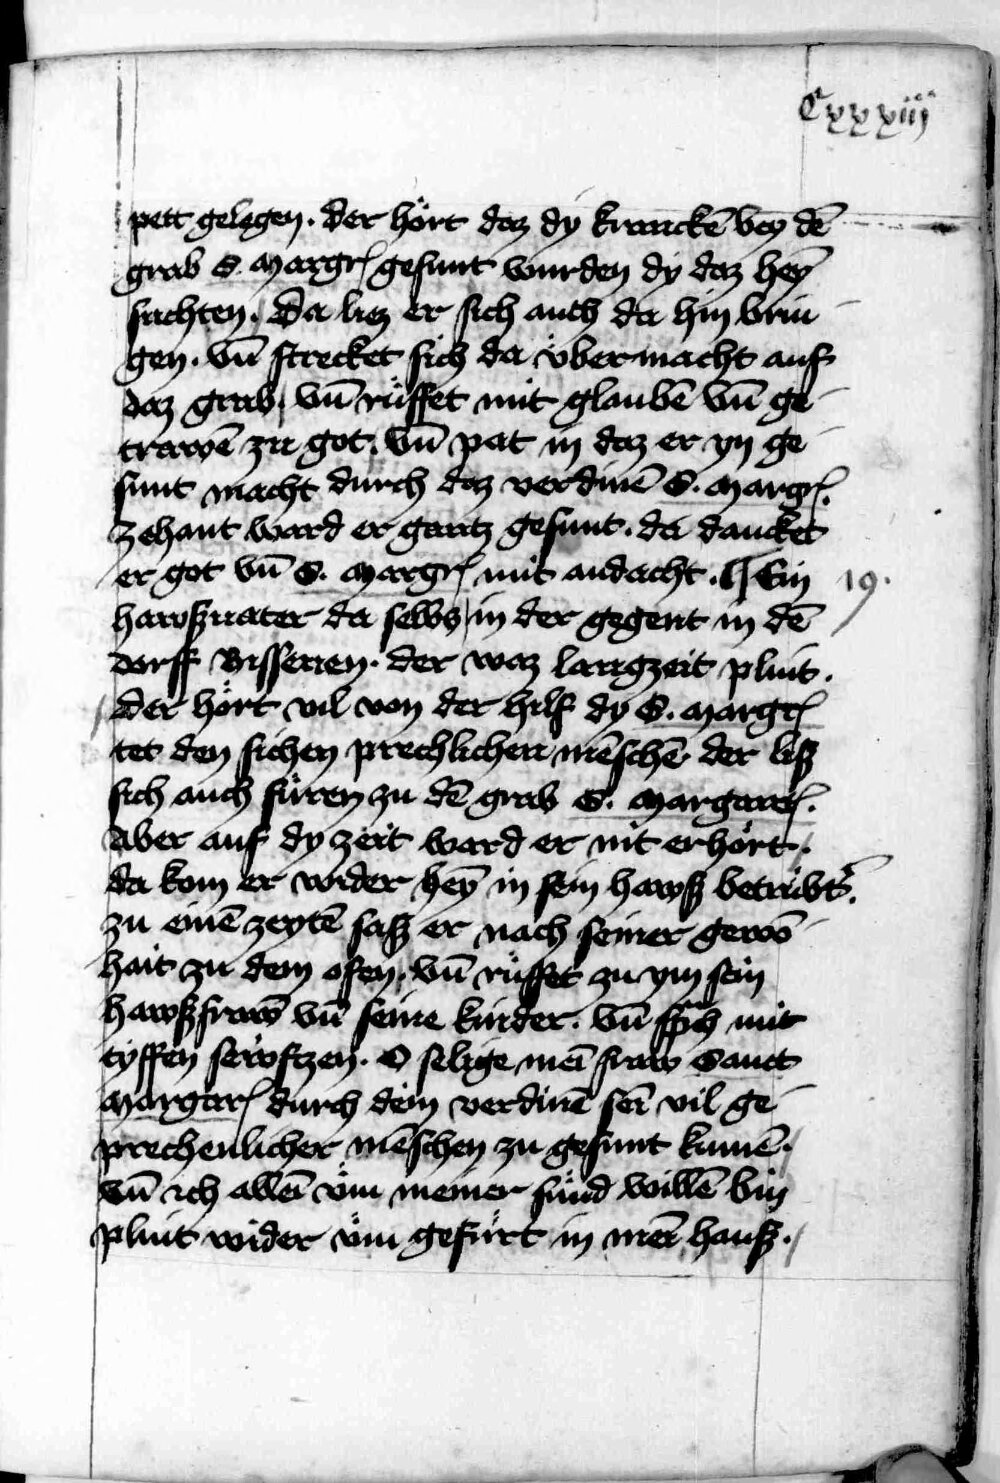 Cxxxiij
pett gelegen. der hört daz dy kranckē bey dē
grab S. margr̄ gesunt wurden dy daz heȳ
suchten. Da liez er sich auch da hin brin
gen. vn̄ strecket sich da übermacht auf
daz grab. vn̄ rüffet mit glaubē vn̄ ge
trawē zu got. vn̄ pat in daz er yn ge
sunt macht durch daz verdinē S. margr̄.
Zehant ward er gantz gesunt. da dancket
er got vn̄ S. margr̄ mit andacht. ¶ Ein 19.
hawßuater da selbs in der gegent in dē
dorff Bisseren. der waz langzeit plint.
Der hört vil von der hilf dy S. margr̄
tet den sichen prechlichen mēschē der liß
sich auch füren zu dē grab S. margarē.
Aber auf dy zeit ward er nit erhört.
da kom er wider heȳ in sein hawß betrübt̄.
zu einē zeytē saß er nach seiner gewō
hait zu dem ofen. vn̄ rüffet zu ym sein
hawßfraw̄ vn̄ seine kinder. vn̄ sp̄ch mit
tyffen sewftzen. O selige mei fraw Sanct
margar̄ durch dein verdinē sei vil ge
prechenlicher mēschen zu gesunt kumē.
vn̄ ich allei vm̄ meiner sünd willē bin
plint wider vm̄ gefürt in mei hauß.